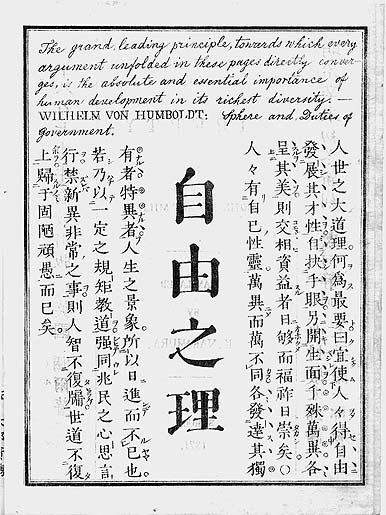 The grand, leading principle, towards which every
argument unfolded in these pages directly conver-
ges, is the absolute and essential importance of
human development in its richest diversity. —
WILHELM VON HUMBOLDT: Sphere and Duties of
Government.
人世之大道理何為最要曰宜使人々得自由
發展其才性自扶手眼另開生面千殊萬異各
呈其美則交相資益者日夠而福祚日崇矣〇
人々有自己性靈萬異而萬不同各發達其獨
自由之理
有者特異者人生之景象所以日進而不已也
若乃以一定之規矩教道强同兆民之心思言
行禁新異非常之事則人智不復牖世道不復
上歸于固陋頑愚而已矣